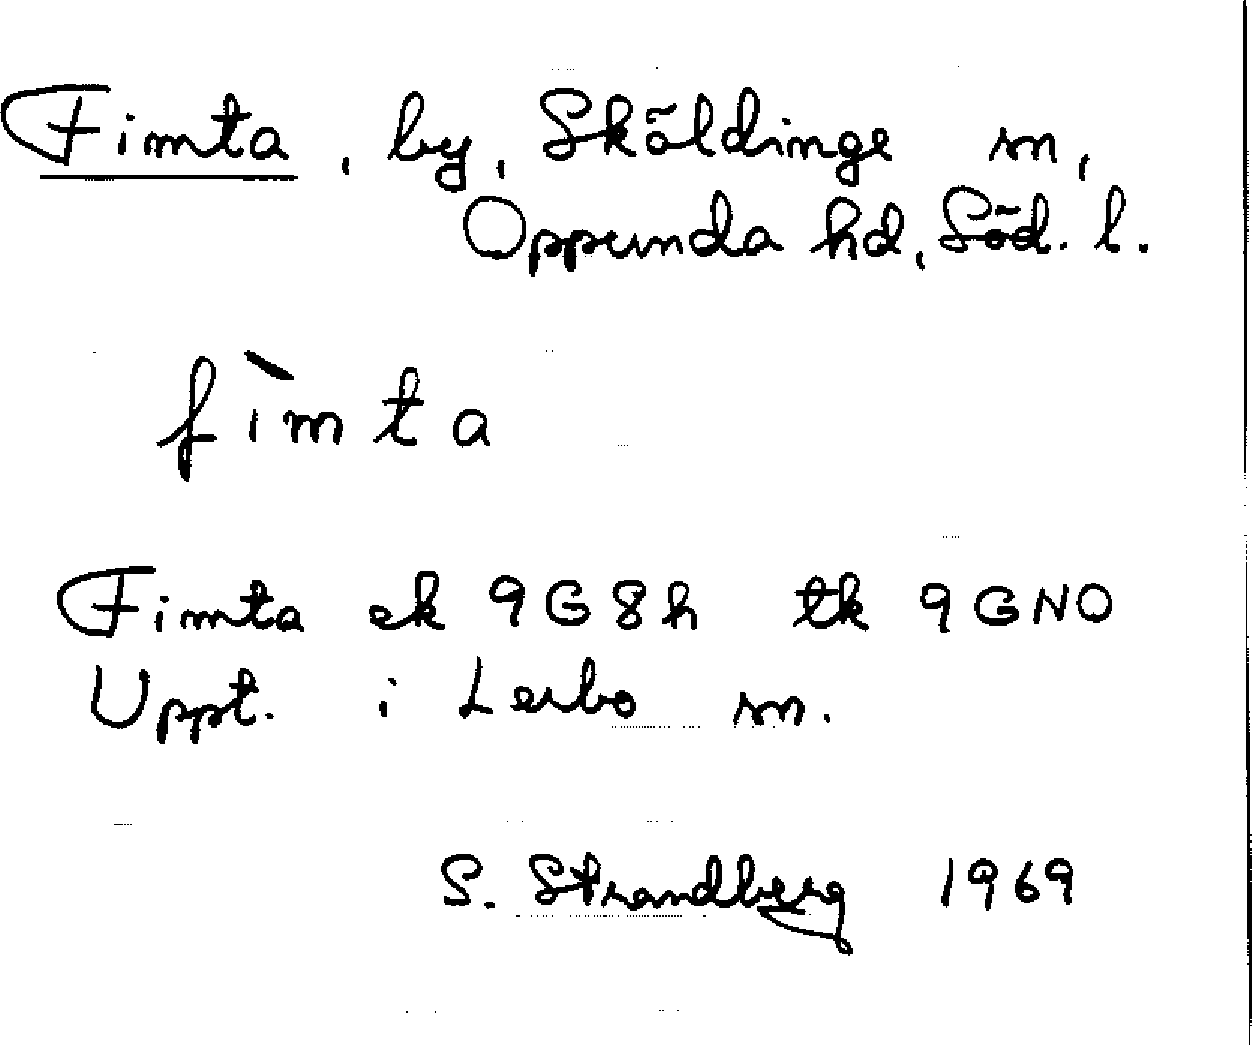 Fimta, by, Sköldinge sn,
Oppunda hd, Söd. l.
fìmta
Fimta ek 9G8h tk 9GNO
Uppt. i Lerbo sn.
S. Strandberg 1969